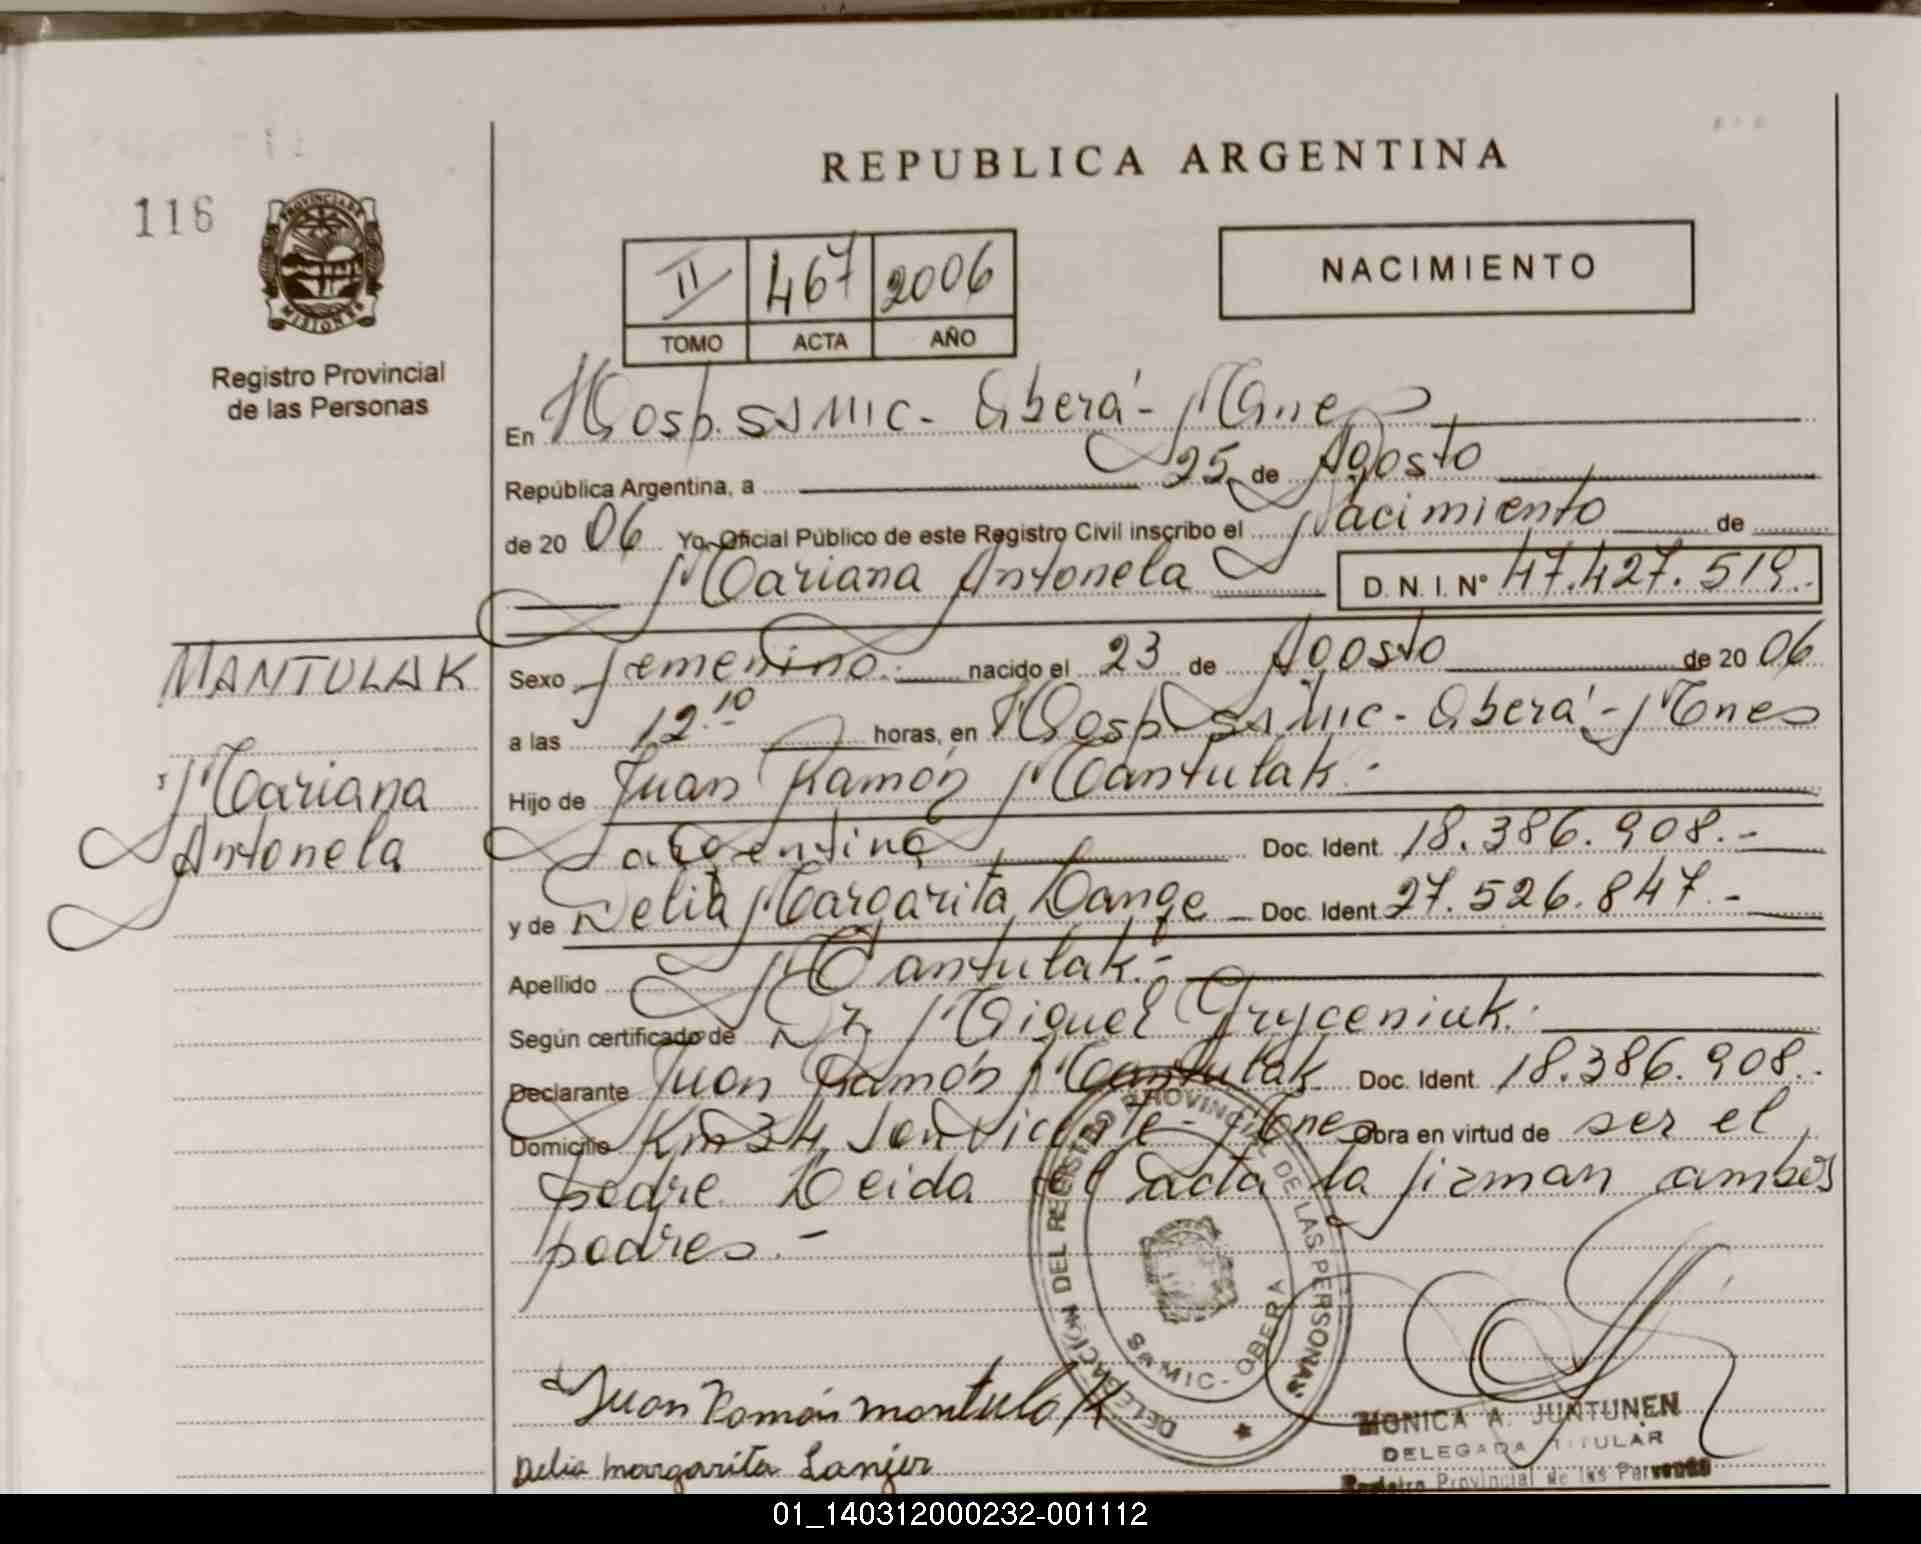 REPUBLICA ARGENTINA
116
PROVINCIA DE
MISIONES
Registro Provincial
de las Personas
II 467 2006
TOMO ACTA AÑO
NACIMIENTO
En Hosp. SAMIC - Oberá - Mnes
República Argentina, a 25 de Agosto
de 2006 Yo, Oficial Público de este Registro Civil inscribo el Nacimiento de
Mariana Antonela D.N.I. Nº 47.427.519.
MANTULAK
Mariana
Antonela
Sexo femenino. nacido el 23 de Agosto de 2006
a las 12.10 horas, en Hosp. SAMIC - Oberá - Mnes
Hijo de Juan Ramón Mantulak.-
argentina Doc. Ident. 18.386.908.-
y de Delia Margarita Doc. Ident. 27.526.847.-
Apellido Mantulak.-
Según certificado de Dr. Miguel Gryceniuk.
Declarante Juan Ramón Mantulak Doc. Ident. 18.386.908.
Domicilio Km 34 San Vicente - Mnes Obra en virtud de ser el
padre. Leida el acta la firman ambos
padres.-
DELEGACIÓN DEL REGISTRO PROVINCIAL DE LAS PERSONAS
SAMIC - OBERA
Juan Ramón Mantulak
Delia Margarita
MONICA A. JUNTUNEN
DELEGADA TITULAR
Registro Provincial de las Personas
01_140312000232-001112